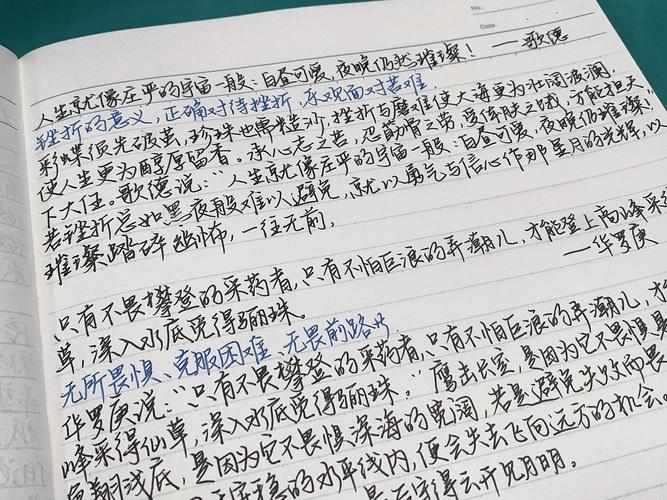 No.
Date
人生就像庄严的宇宙一般：白昼可爱，夜晚仍然璀璨！ ——歌德
挫折的意义，正确对待挫折，乐观面对苦难
彩蝶须先破茧，珍珠也需粗沙，挫折与磨难使大海更为壮阔波澜，
使人生更为醇厚留香。承心志之苦，忍筋骨之劳，受体肤之饿，才能担天
下大任。歌德说：“人生就像庄严的宇宙一般：白昼可爱，夜晚仍难璀璨”
若挫折总如黑夜般难以避免，就以勇气与信心作那星月的光辉，以
璀璨踏碎幽怖，一往无前。
只有不畏攀登的采药者，只有不怕巨浪的弄潮儿，才能登上高峰采
草，深入水底觅得骊珠。 ——华罗庚
无所畏惧、克服困难、无畏前路
华罗庚说：“只有不畏攀登的采药者，只有不怕巨浪的弄潮儿，才
峰采得仙草，深入水底觅得骊珠。”鹰击长空，是因为它不畏惧
翔浅底，是因为它不畏惧深海的宽阔，若是避免失败而畏
的水平线内，便会失去飞向远方的机会。
得云开见月明。